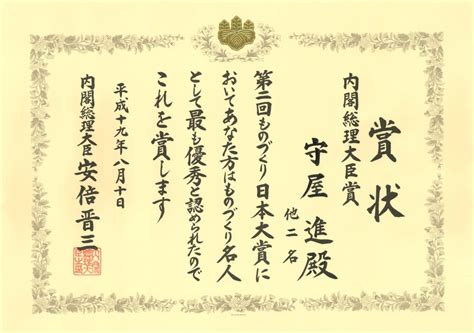 賞状
内閣総理大臣賞
守屋進殿
他二名
第二回ものづくり日本大賞に
おいてあなた方はものづくり名人
として最も優秀と認められたので
これを賞します
平成十九年八月十日
内閣総理大臣 安倍晋三